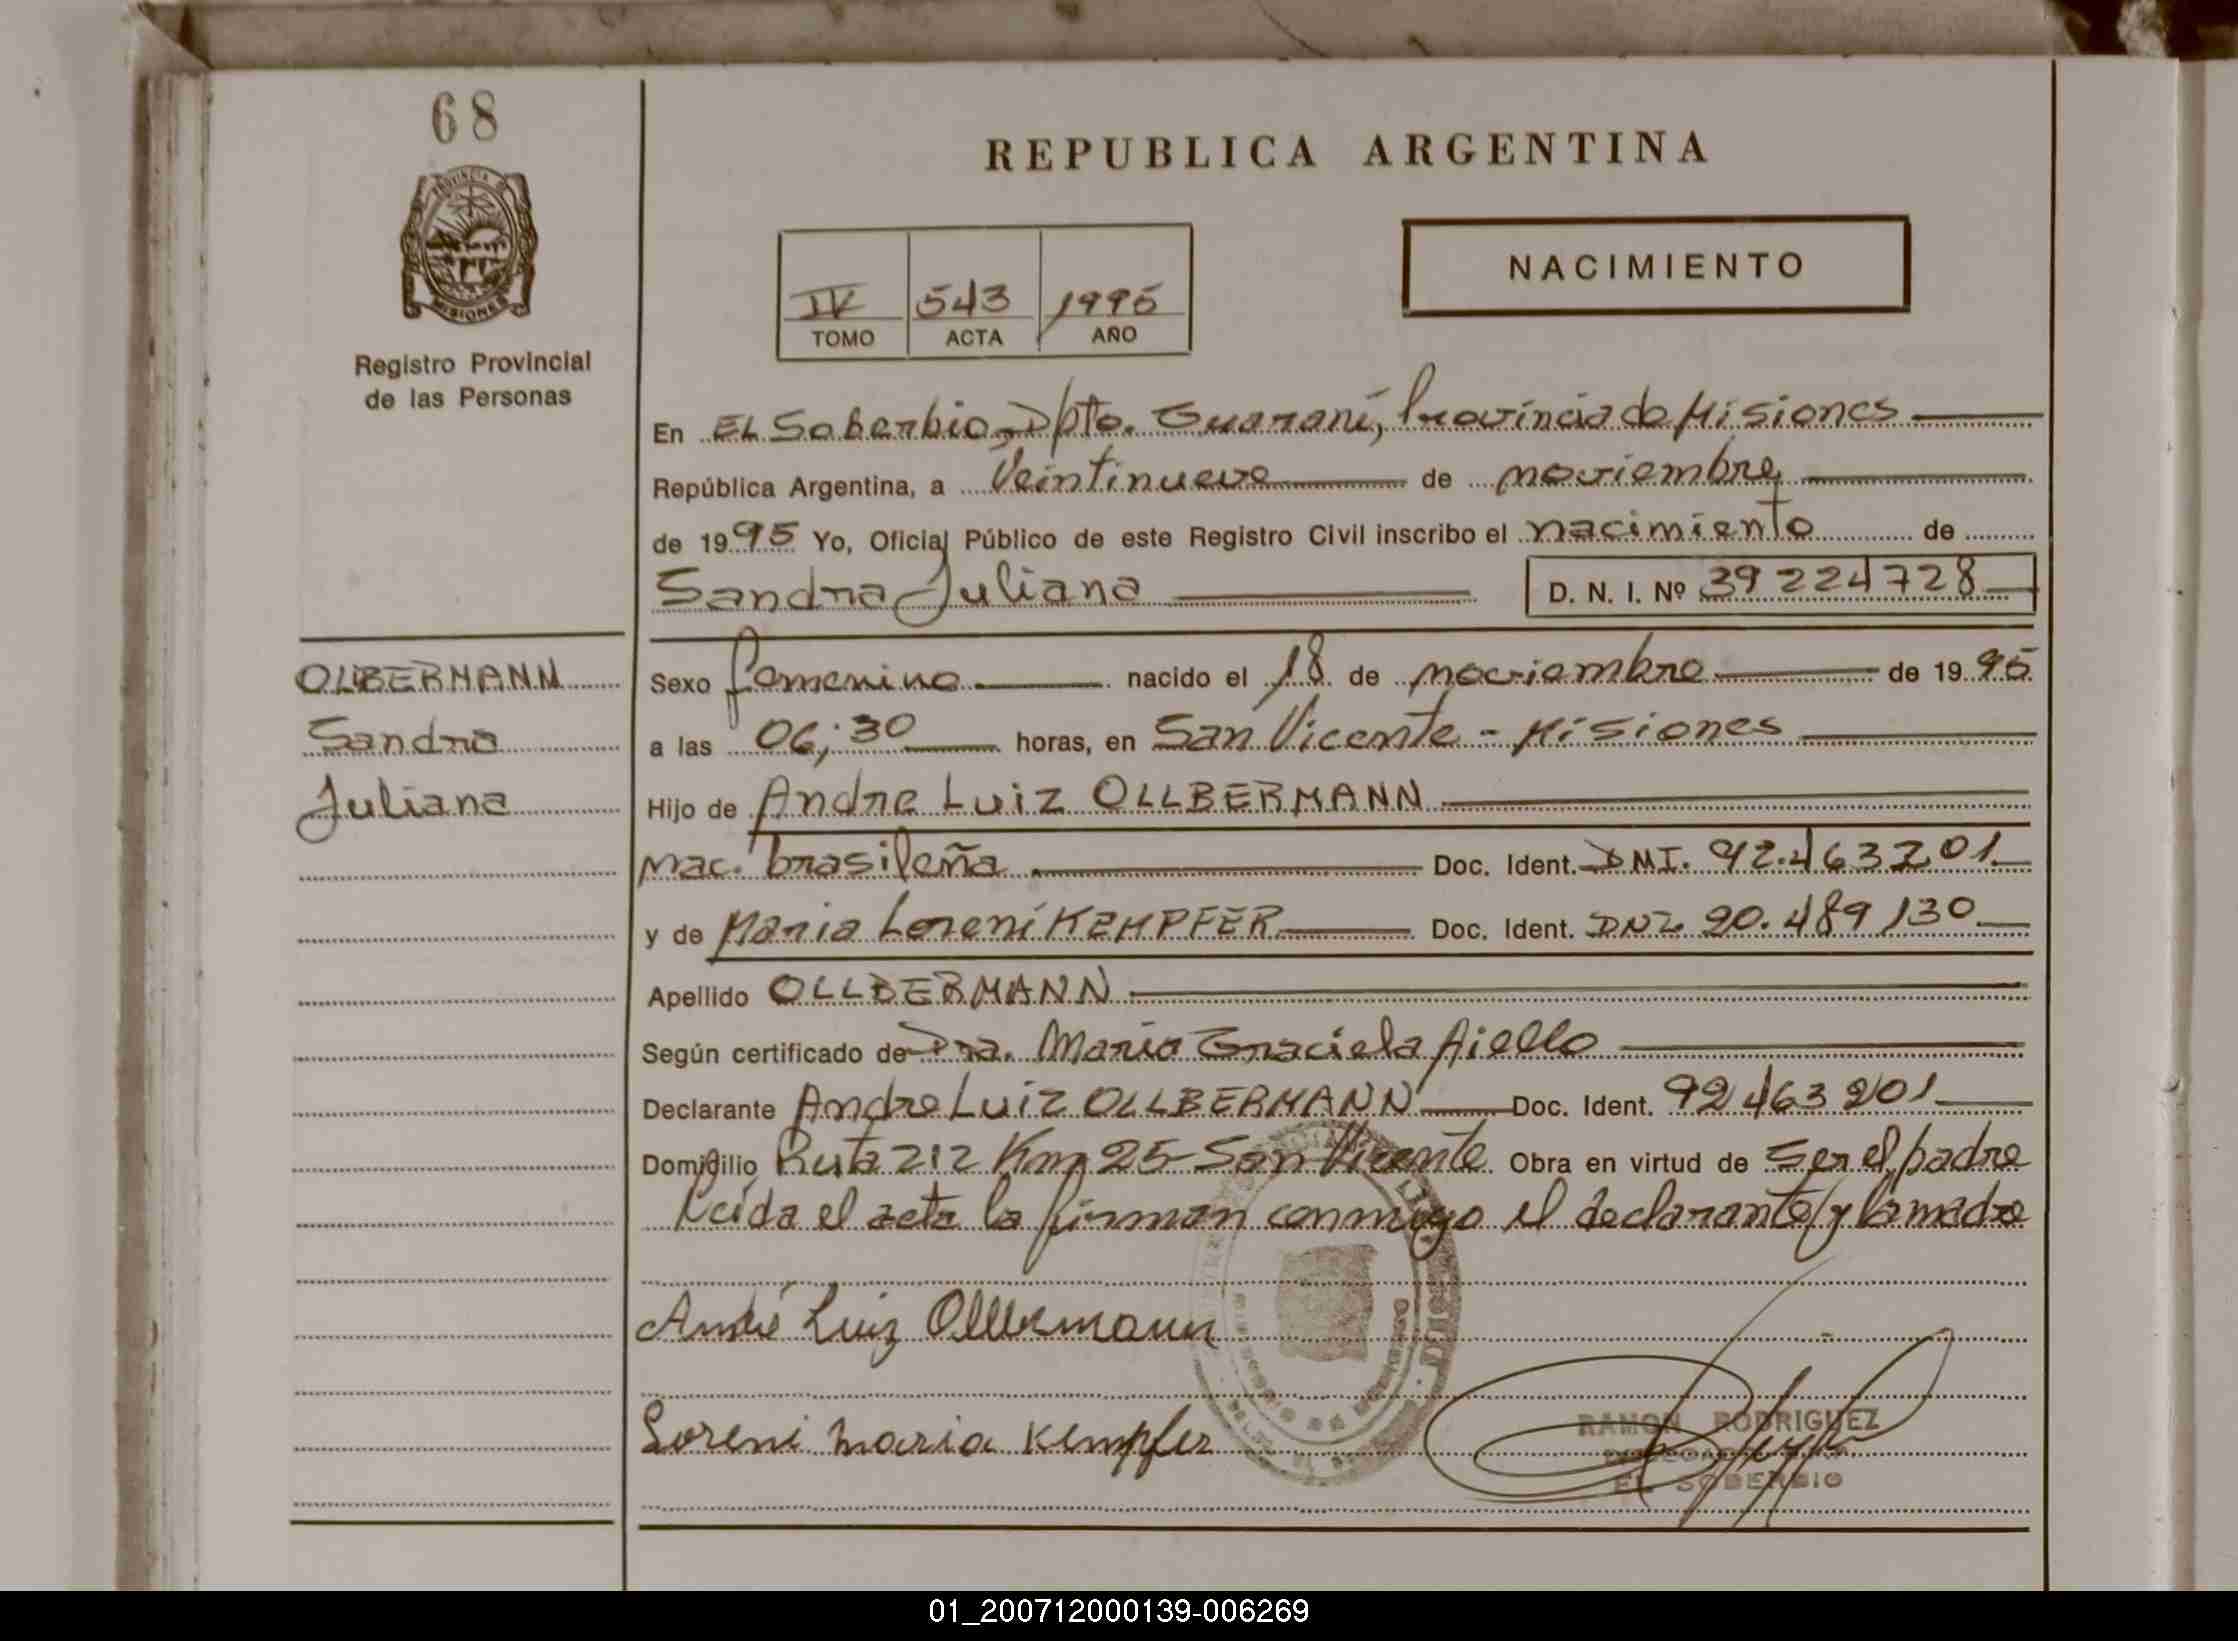 68
PROVINCIA DE
MISIONES
Registro Provincial
de las Personas
REPUBLICA ARGENTINA
NACIMIENTO
IV 543 1995
TOMO ACTA AÑO
En EL Soberbio, Dpto. Guaraní, Provincia de Misiones
República Argentina, a Veintinueve de noviembre
de 1995 Yo, Oficial Público de este Registro Civil inscribo el nacimiento de
Sandra Juliana D. N. I. Nº 39224728
OLLBERMANN
Sandra
Juliana
Sexo femenino nacido el 18 de noviembre de 1995
a las 06;30 horas, en San Vicente - Misiones
Hijo de Andre Luiz OLLBERMANN
Nac. brasileña Doc. Ident. DNI. 92.463201
y de Maria Loreni KEMPFER Doc. Ident. DNI 20.489130
Apellido OLLBERMANN
Según certificado de Dra. Maria Graciela Aiello
Declarante Andre Luiz OLLBERMANN Doc. Ident. 92463201
Domicilio Ruta 212 Km 25 San Vicente Obra en virtud de ser el padre
Leída el acta la firman conmigo el declarante y la madre
André Luiz Ollbermann
Loreni maria Kempfer
RAMON RODRIGUEZ
EL SOBERBIO
01_200712000139-006269